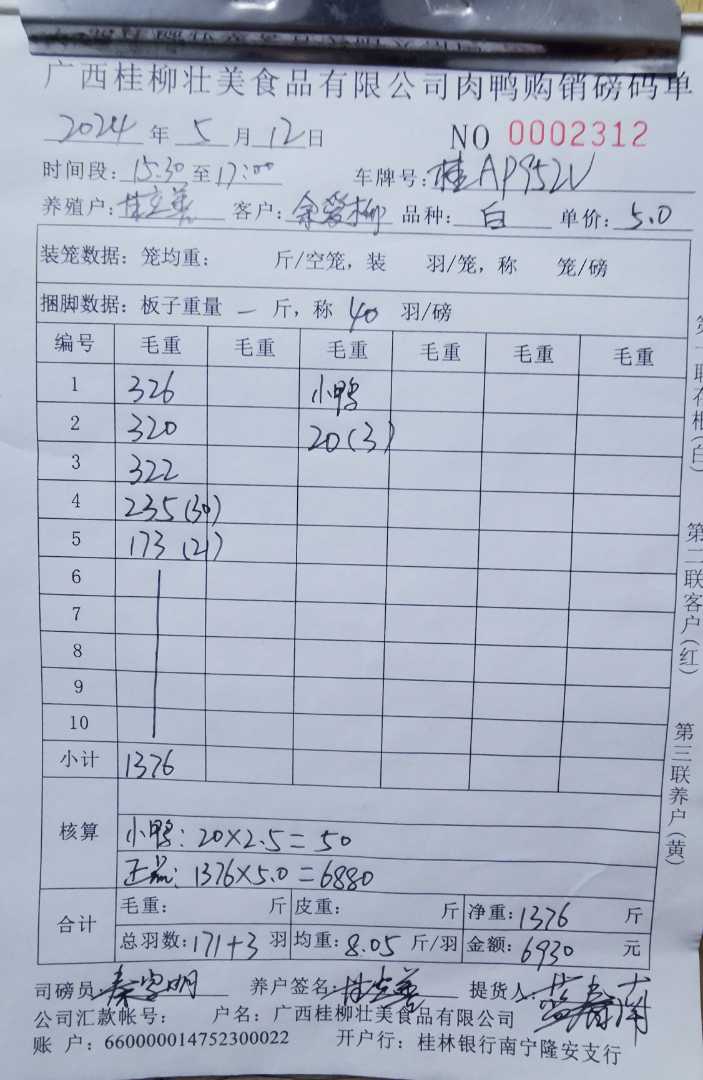 广西桂柳壮美食品有限公司肉鸭购销磅码单
2024 年 5 月 12 日 NO 0002312
时间段: 15:30 至 17:00 车牌号: 桂AP952V
养殖户: 客户: 品种: 白 单价: 5.0
装笼数据: 笼均重: 斤/空笼, 装 羽/笼, 称 笼/磅
捆脚数据: 板子重量 一 斤, 称 40 羽/磅
编号 毛重 毛重 毛重 毛重 毛重 毛重
1 326 小鸭
2 320 20(3)
3 322
4 235(30)
5 173 (21)
6
7
8
9
10
小计 1376
核算
小鸭: 20×2.5=50
正品: 1376×5.0=6880
合计
毛重: 斤 皮重: 斤 净重: 1376 斤
总羽数: 171+3 羽 均重: 8.05 斤/羽 金额: 6930 元
司磅员 养户签名: 提货人
公司汇款帐号: 户名: 广西桂柳壮美食品有限公司
账 户: 660000014752300022 开户行: 桂林银行南宁隆安支行
第二联客户(红)
第三联养户(黄)